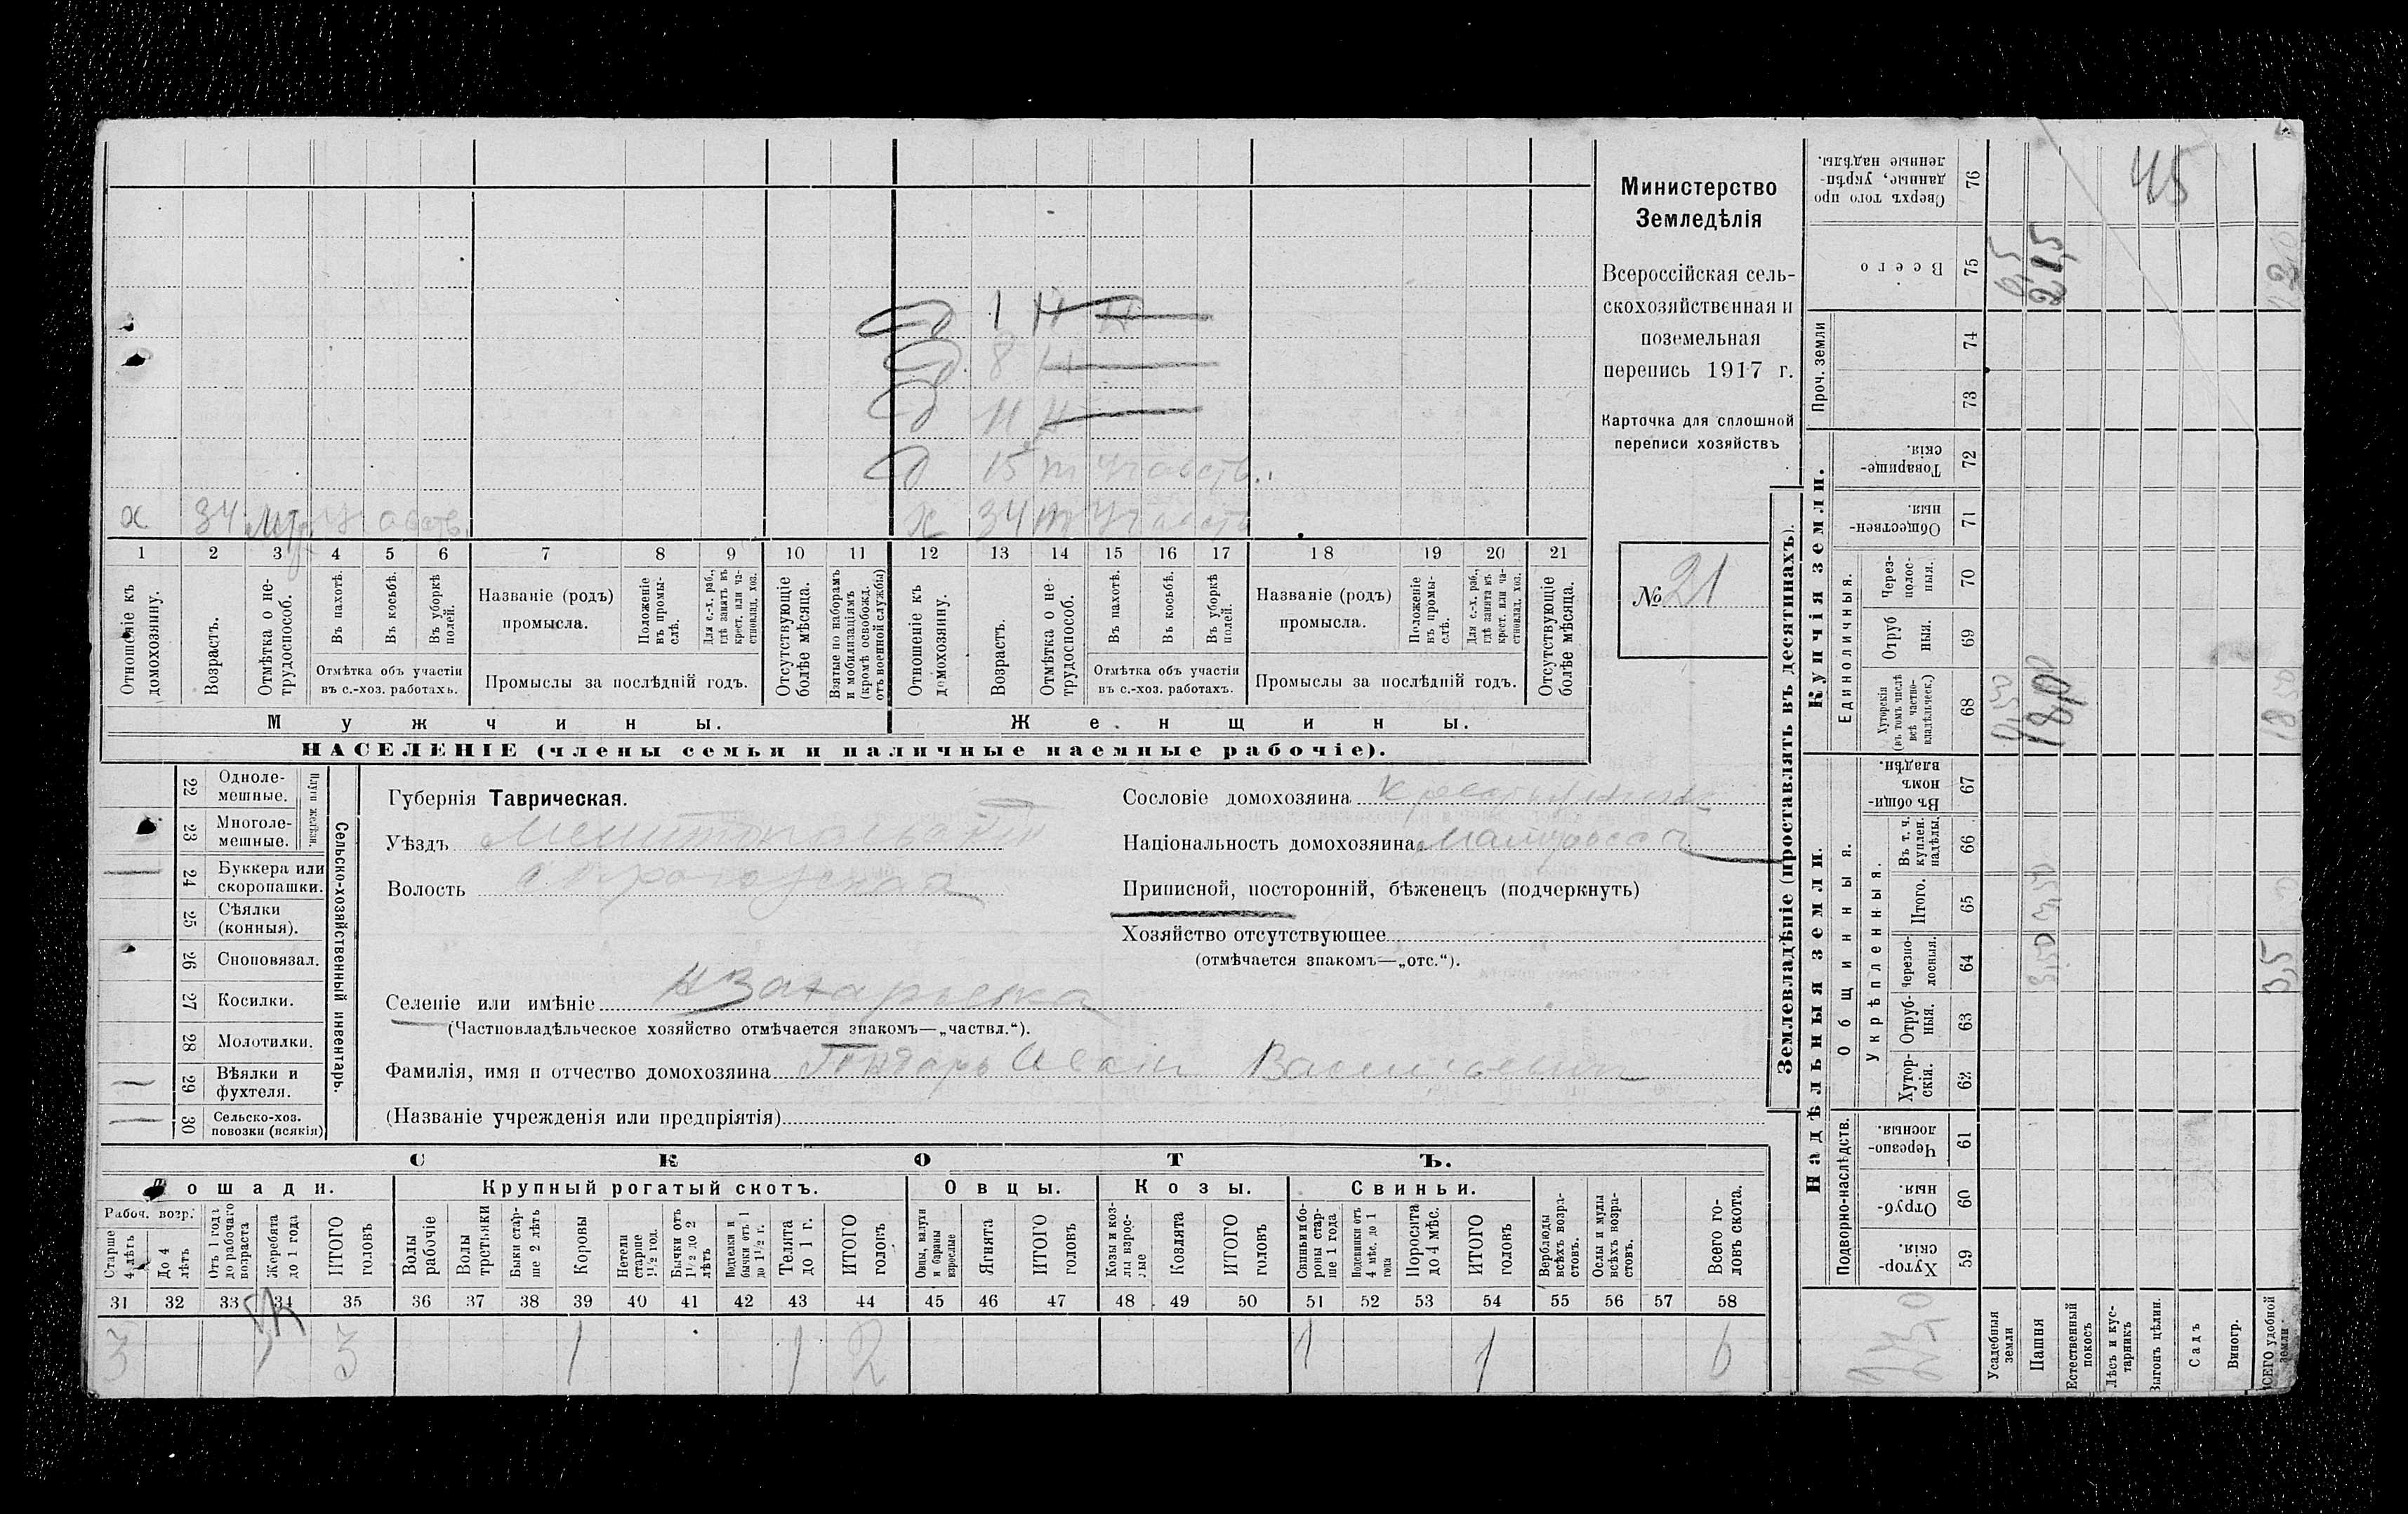 д 1 н н
д 8 н
д 11 н
д 15 т участв.
х 34 мтр участв. х 34 т участв
1 2 3 4 5 6 7 8 9 10 11 12 13 14 15 16 17 18 19 20 21
Отношеніе къ домохозяину.
Возрастъ.
Отмѣтка о нетрудоспособ.
Въ пахотѣ.
Въ косьбѣ.
Въ уборкѣ полей.
Отмѣтка объ участіи
въ с.-хоз. работахъ.
Названіе (родъ)
промысла.
Положеніе въ промыслѣ.
Для с.-х. раб., гдѣ занятъ въ крест. или частновлад. хоз.
Промыслы за послѣдній годъ.
Отсутствующіе болѣе мѣсяца.
Взятые по наборамъ и мобилизаціямъ (кромѣ освобожд. отъ военной службы)
Отношеніе къ домохозяину.
Возрастъ.
Отмѣтка о нетрудоспособ.
Въ пахотѣ.
Въ косьбѣ.
Въ уборкѣ полей.
Отмѣтка объ участіи
въ с.-хоз. работахъ.
Названіе (родъ)
промысла.
Положеніе въ промыслѣ.
Для с.-х. раб., гдѣ занята въ крест. или частновлад. хоз.
Промыслы за послѣдній годъ.
Отсутствующіе болѣе мѣсяца.
Мужчины.
Женщины.
НАСЕЛЕНІЕ (члены семьи и наличные наемные рабочіе).
Министерство
Земледѣлія
Всероссійская сель-
скохозяйственная и
поземельная
перепись 1917 г.
Карточка для сплошной
переписи хозяйствъ
№ 21
22 Одноле-
мешные.
23 Многоле-
мешные.
Плуги желѣзн.
24 Буккера или
скоропашки.
25 Сѣялки
(конныя).
26 Сноповязал.
27 Косилки.
28 Молотилки.
29 Вѣялки и
фухтеля.
30 Сельско-хоз.
повозки (всякія)
Сельско-хозяйственный инвентарь.
Губернія Таврическая.
Уѣздъ Мелитопольскій
Волость
Селеніе или имѣніе Н Захарьевка
(Частновладѣльческое хозяйство отмѣчается знакомъ—„частвл.“).
Фамилія, имя и отчество домохозяина Иванъ Васильевич
(Названіе учрежденія или предпріятія)
Сословіе домохозяина крестьянинъ
Національность домохозяина малоросс
Приписной, посторонній, бѣженецъ (подчеркнуть)
Хозяйство отсутствующее
(отмѣчается знакомъ—„отс.“).
СКОТЪ.
Лошади.
Крупный рогатый скотъ.
Овцы.
Козы.
Свиньи.
Рабоч. возр.
Старше 4 лѣтъ
До 4 лѣтъ
Отъ 1 года до рабочаго возраста
Жеребята до 1 года
ИТОГО головъ
Волы рабочіе
Волы третьяки
Быки старше 2 лѣтъ
Коровы
Нетели старше 1½ год.
Бычки отъ 1½ до 2 лѣтъ
Подтелки и бычки отъ 1 до 1½ г.
Телята до 1 г.
ИТОГО головъ
Овцы, валухи и бараны взрослые
Ягнята
ИТОГО головъ
Козы и козлы взрослые
Козлята
ИТОГО головъ
Свиньи и бороны старше 1 года
Подсвинки отъ 4 мѣс. до 1 года
Поросята до 4 мѣс.
ИТОГО головъ
Верблюды всѣхъ возрастовъ.
Ослы и мулы всѣхъ возрастовъ.
Всего головъ скота.
31 32 33 34 35 36 37 38 39 40 41 42 43 44 45 46 47 48 49 50 51 52 53 54 55 56 57 58
3 3 1 1 2 1 1 6
Землевладѣніе (проставлять въ десятинахъ).
Купчія земли.
Надѣльныя земли.
Сверхъ того проданные, укрѣпленные надѣлы. 76
45
Всего 75
215
Проч. земли
74
73
Товарищескія. 72
Общественныя. 71
Единоличныя.
Черезполосныя. 70
Отрубныя. 69
Хуторскія (въ томъ числѣ всѣ частновладѣльческ.) 68
Общинныя.
Въ общиномъ владѣн. 67
Укрѣпленныя.
Въ т. ч. куплен. надѣлы. 66
Итого. 65
Черезполосныя. 64
35
Отрубныя. 63
Хуторскія. 62
Подворно-наслѣдств.
Черезполосныя. 61
Отрубныя. 60
Хуторскія. 59
Усадебныя земли
Пашня
Естественный покосъ
Лѣсъ и кустарникъ
Выгонъ цѣлин.
Садъ
Виногр.
ВСЕГО удобной земли